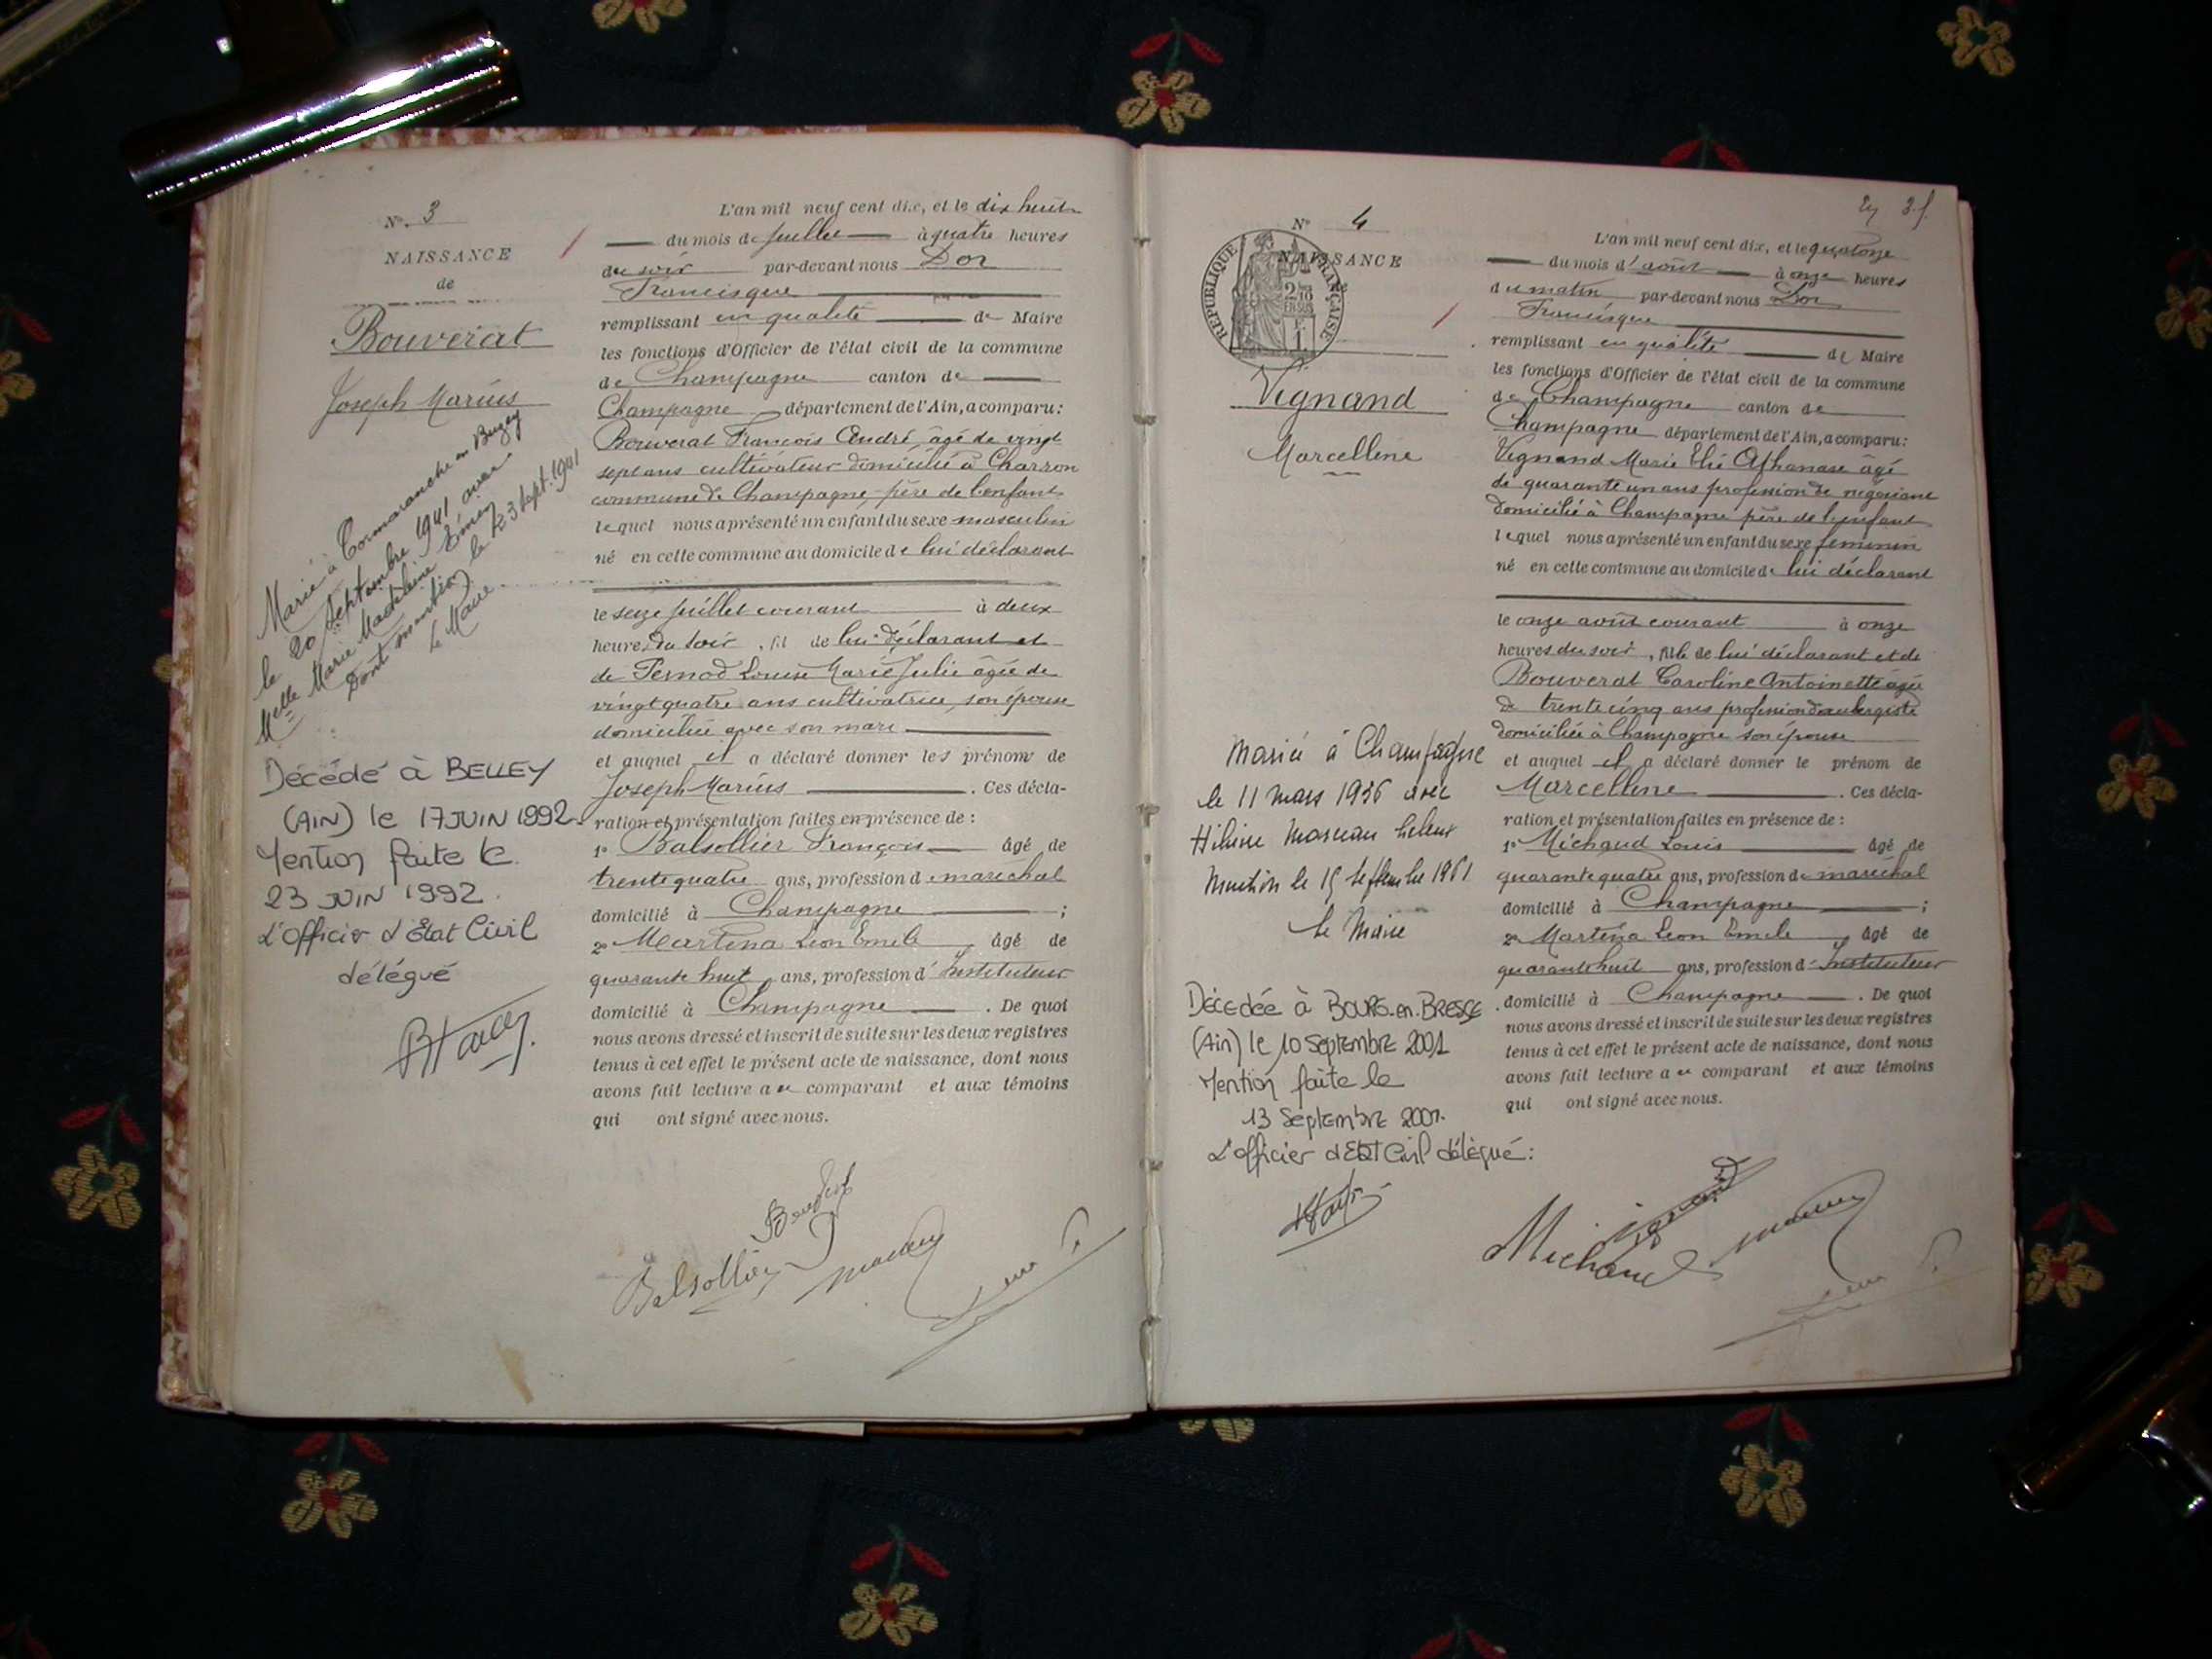 N° 3
NAISSANCE
de
Bouverat
Joseph Marius
Marié à Cormaranche en Bugey
le 20 Septembre 1941 avec
Melle Marie Madeleine
Dont mention le 23 Sept. 1941
Le Maire
Décédé à BELLEY
(AIN) le 17 JUIN 1992.
Mention faite le
23 JUIN 1992.
L'officier d'Etat Civil
délégué
L'an mil neuf cent dix, et le dix huit
du mois de juillet à quatre heures
du soir par-devant nous Dor
Francisque
remplissant en qualité de Maire
les fonctions d'Officier de l'état civil de la commune
de Champagne canton de
Champagne, département de l'Ain, a comparu :
Bouverat François André, âgé de vingt
sept ans cultivateur domicilié à Charron
commune de Champagne, père de l'enfant
lequel nous a présenté un enfant du sexe masculin
né en cette commune au domicile de lui déclarant
le seize juillet courant à deux
heures du soir, fil de lui déclarant et
de Pernod Louise Marie Julie âgée de
vingt quatre ans cultivatrice, son épouse
domiciliée avec son mari
et auquel il a déclaré donner les prénoms de
Joseph Marius. Ces décla-
ration et présentation faites en présence de :
1° Balsollier François âgé de
trente quatre ans, profession de maréchal
domicilié à Champagne ;
2° Martina Léon Emile, âgé de
quarante huit ans, profession d'Instituteur
domicilié à Champagne. De quoi
nous avons dressé et inscrit de suite sur les deux registres
tenus à cet effet le présent acte de naissance, dont nous
avons fait lecture au comparant et aux témoins
qui ont signé avec nous.
Balsollier
N° 4
NAISSANCE
RÉPUBLIQUE FRANÇAISE
2/10 EN SUS
1F
Vignand
Marcelline
Mariée à Champagne
le 11 mars 1936 avec
Mention le 15 Septembre 1961
Le Maire
Décédée à BOURG-en-BRESSE
(Ain) le 10 Septembre 2001
Mention faite le
13 Septembre 2001.
L'officier d'Etat Civil délégué :
L'an mil neuf cent dix, et le quatorze
du mois d'août à onze heures
du matin par-devant nous Dor
Francisque
remplissant en qualité de Maire
les fonctions d'Officier de l'état civil de la commune
de Champagne canton de
Champagne département de l'Ain, a comparu :
Vignand Marie Elie Athanase âgé
de quarante un ans profession de négociant
domicilié à Champagne père de l'enfant
lequel nous a présenté un enfant du sexe feminin
né en cette commune au domicile de lui déclarant
le onze août courant à onze
heures du soir, fille de lui déclarant et de
Bouverat Caroline Antoinette agée
de trente cinq ans profession d'aubergiste
domiciliée à Champagne son épouse
et auquel il a déclaré donner le prénom de
Marcelline. Ces décla-
ration et présentation faites en présence de :
1° Michaud Louis âgé de
quarante quatre ans, profession de maréchal
domicilié à Champagne ;
2° Martina Léon Emile, âgé de
quarante huit ans, profession d'Instituteur
domicilié à Champagne. De quoi
nous avons dressé et inscrit de suite sur les deux registres
tenus à cet effet le présent acte de naissance, dont nous
avons fait lecture au comparant et aux témoins
qui ont signé avec nous.
Michaud